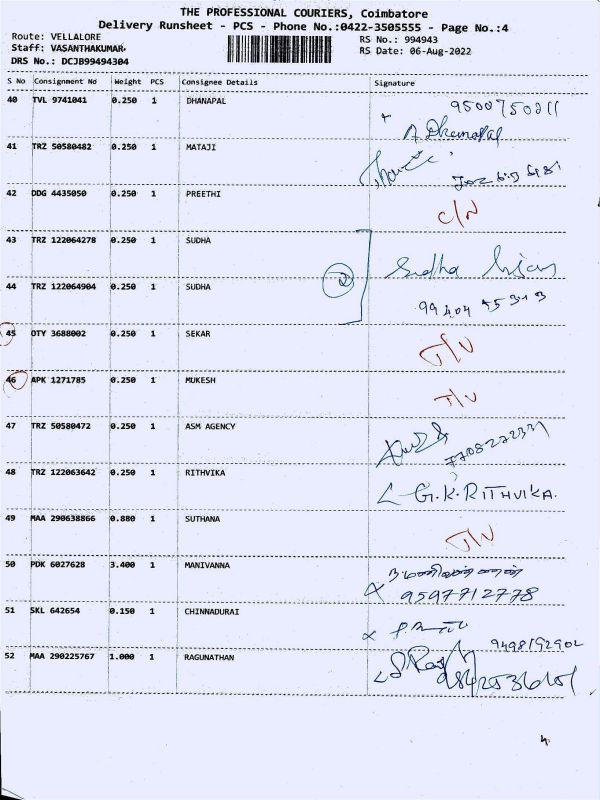 THE PROFESSIONAL COURIERS, Coimbatore
Delivery Runsheet - PCS - Phone No.:0422-3505555 - Page No.:4
Route: VELLALORE
RS No.: 994943
Staff: VASANTHAKUMAR
RS Date: 06-Aug-2022
DRS No.: DCJB99494304
S No Consignment No Weight PCS Consignee Details Signature
40 TVL 9741041 0.250 1 DHANAPAL
A. Dhanapal
41 TRZ 50580482 0.250 1 MATAJI
42 DDG 4435050 0.250 1 PREETHI C/N
43 TRZ 122064278 0.250 1 SUDHA Sudha
44 TRZ 122064904 0.250 1 SUDHA 2
45 OTY 3688002 0.250 1 SEKAR
46 APK 1271785 0.250 1 MUKESH
47 TRZ 50580472 0.250 1 ASM AGENCY
48 TRZ 122063642 0.250 1 RITHVIKA G.K.RITHVIKA.
49 MAA 290638866 0.880 1 SUTHANA
50 PDK 6027628 3.400 1 MANIVANNA
9597712778
51 SKL 642654 0.150 1 CHINNADURAI
9498192902
52 MAA 290225767 1.000 1 RAGUNATHAN
4